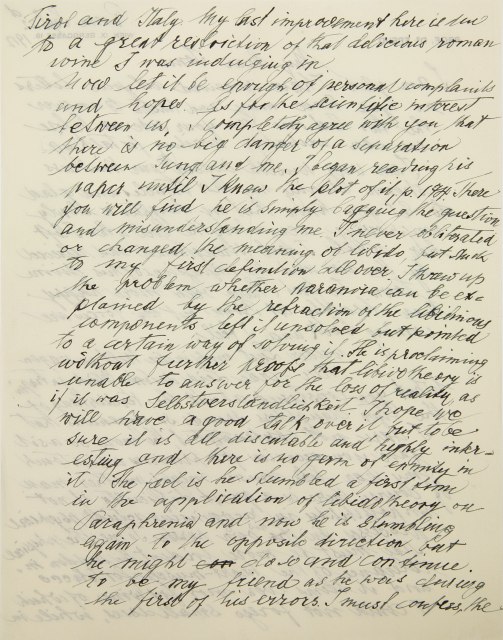 Tirol and Italy. My last improvement here is due
to a great restriction of that delicious roman
wine I was indulging in.
Now let it be enough of personal complaints
and hopes. As for the scientific interest
between us, I completely agree with you that
there is no big danger of a separation
between Jung and me. I began reading his
paper, until I knew the plot of it, p. 194. There
you will find he is simply begging the question
and misunderstanding me. I never obliterated
or changed the meaning of libido, but stuck
to my first definition all over. I threw up
the problem whether paranoia can be ex-
plained by the refraction of the libidinous
components, left it unsolved but pointed
to a certain way of solving it. He is proclaiming
without further proofs that libidotheory is
unable to answer for the loss of reality, as
if it was Selbstverständlichkeit. I hope we
will have a good talk over it, but to be
sure it is all discutable and highly inter-
esting and there is no germ of enmity in
it. The fact is he stumbled a first time
in the application of libidotheory on
Paraphrenia and now he is stumbling
again to the opposite direction, but
he might do so and continue
to be my friend as he was during
the first of his errors. I must confess, the